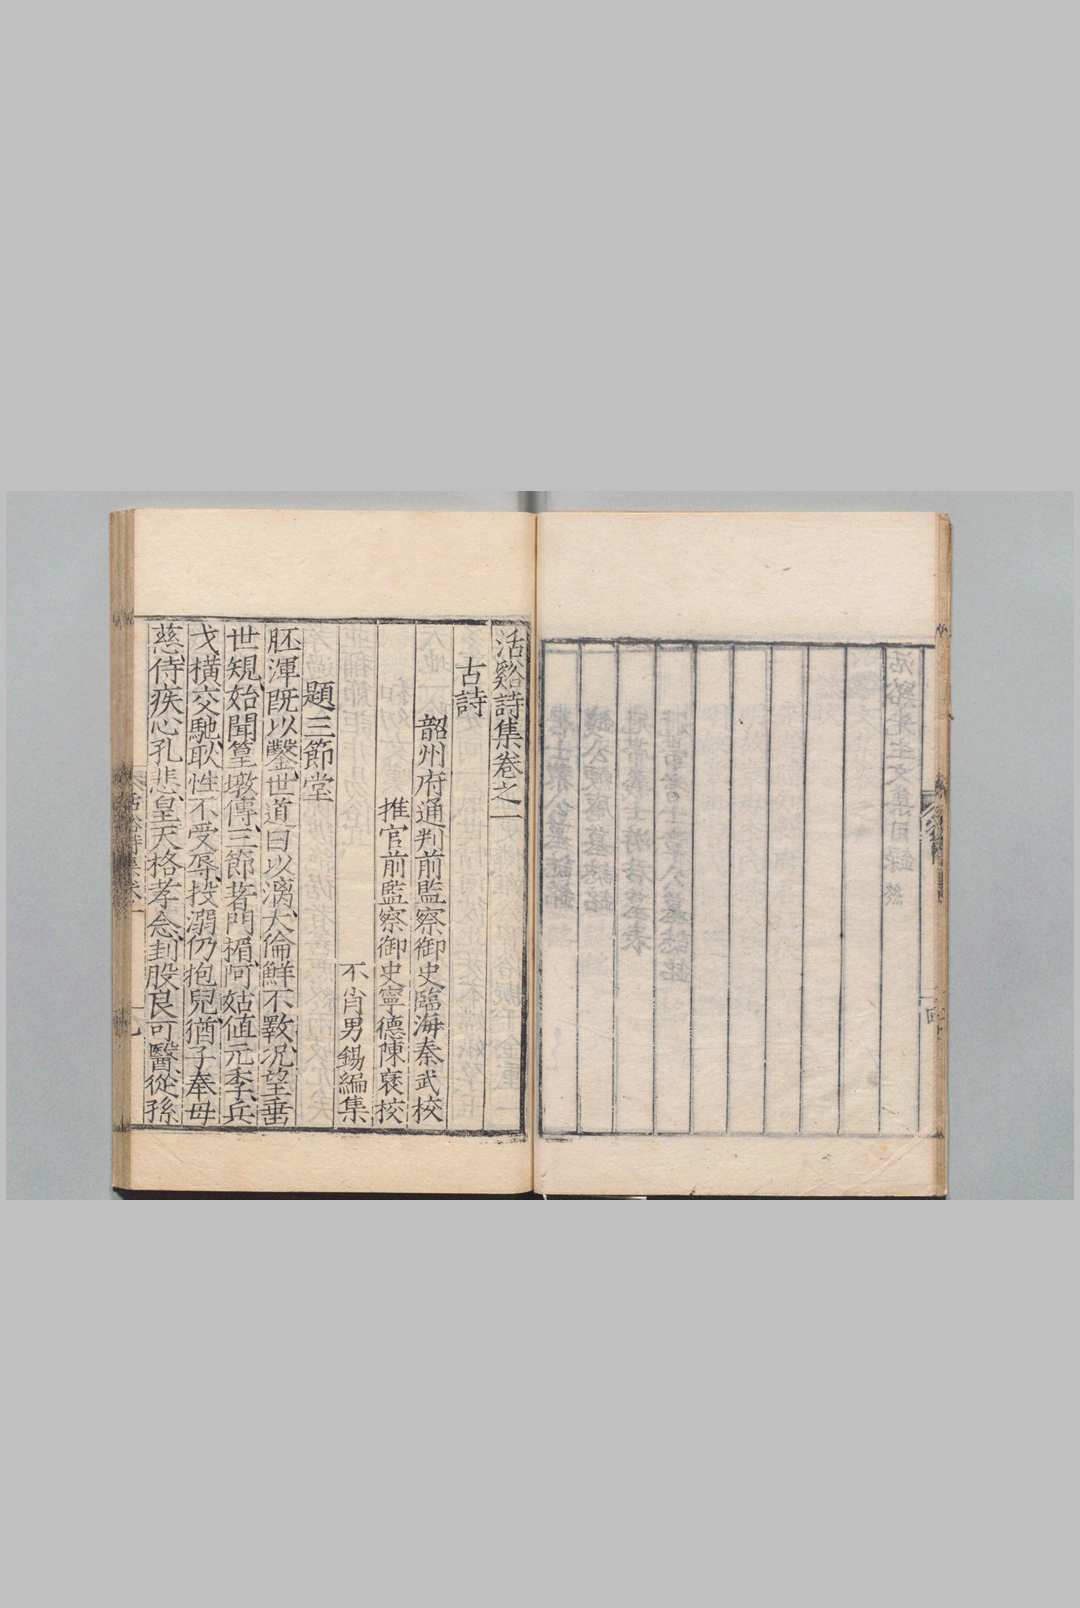 活谿詩集卷之一
古詩
韶州府通判前監察御史臨海秦武校
推官前監察御史寧德陳裒校
不肖男錫編集
題三節堂
胚渾既以鑿世道日以漓大倫鮮不斁況望垂
世規始聞篁墩傳三節著門楣阿姑值元季兵
戈橫交馳耿性不受辱投溺仍抱兒猶子奉母
慈侍疾心孔悲皇天格孝念刲股良可醫從孫